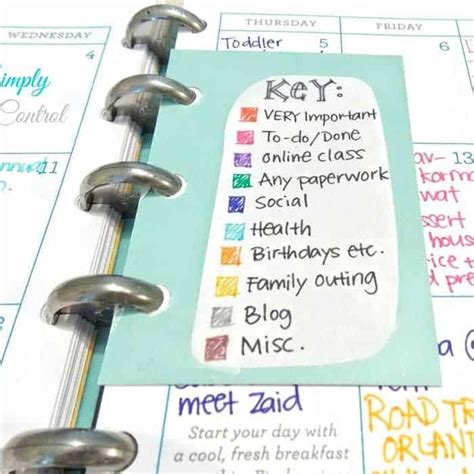 WEDNESDAY
THURSDAY
FRIDAY
4
Toddler 5
6
imply
Control
11
KEY:
VERY Important
To-do/Done
online class
Any paperwork
Social
Health
Birthdays etc.
Family Outing
Blog
Misc.
13
meet Zaid
Start your day with
a cool, fresh breakfast
ROAD
ORLAN